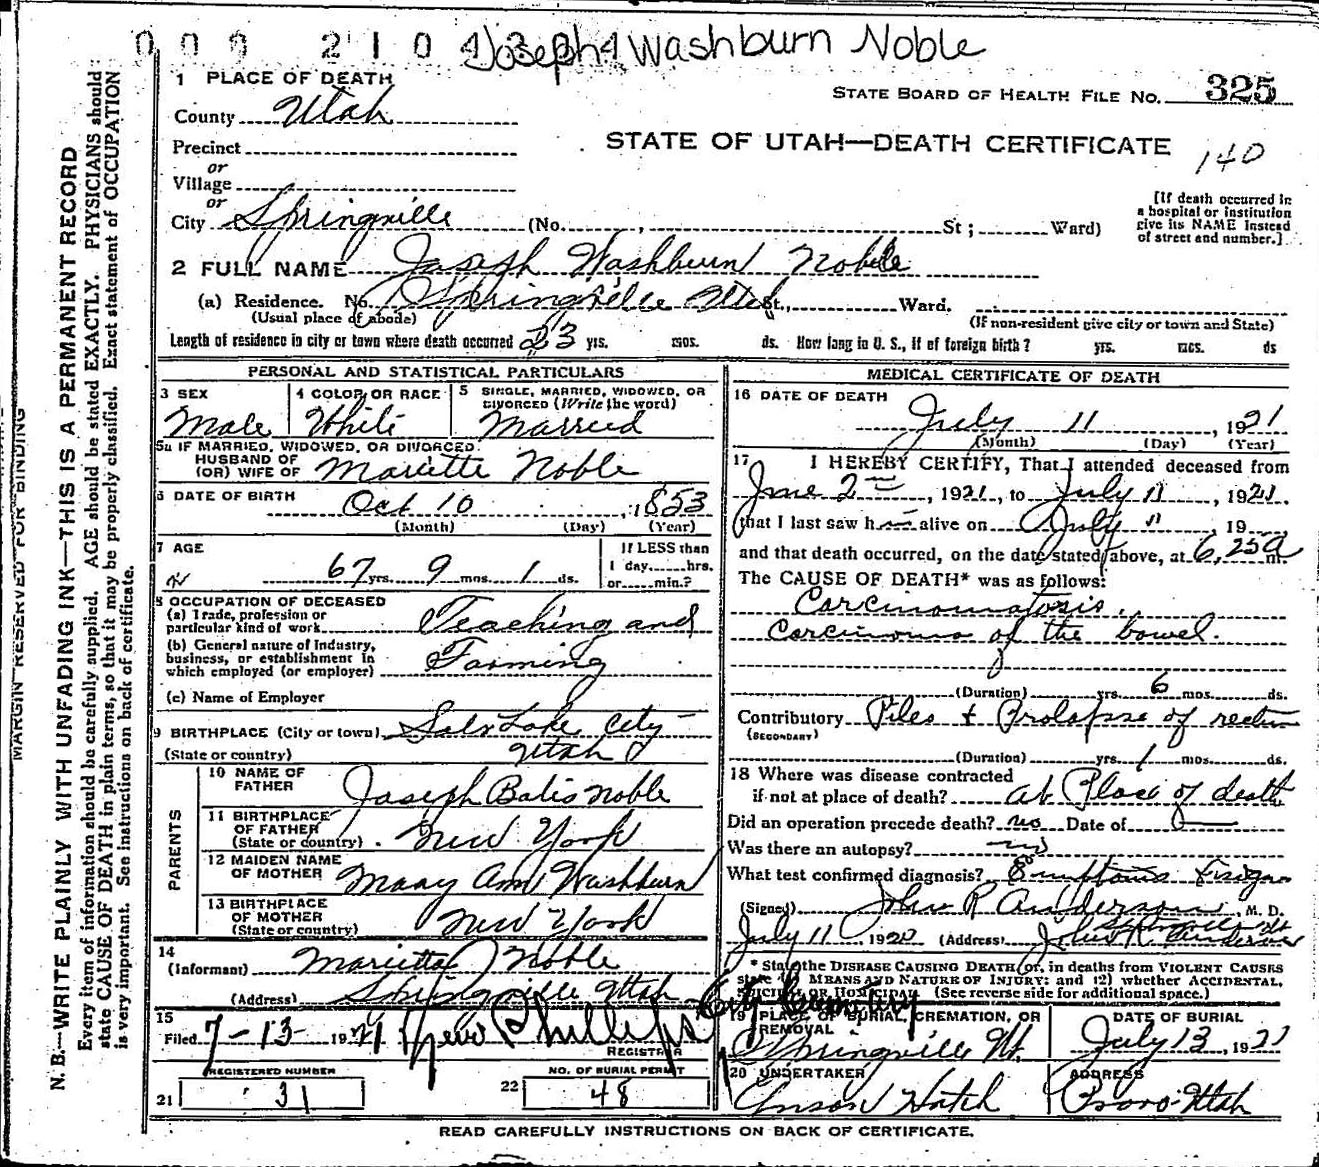 0 0 0 2 1 0 4 3 0 4 Joseph Washburn Noble
STATE BOARD OF HEALTH FILE NO. 325
1 PLACE OF DEATH
County Utah
STATE OF UTAH—DEATH CERTIFICATE 140
Precinct
or
Village
or
City Springville (No. , St; Ward)
[If death occurred in
a hospital or institution
give its NAME instead
of street and number.]
2 FULL NAME Joseph Washburn Noble
(a) Residence. No. Springville Utah St., Ward.
(Usual place of abode) (If non-resident give city or town and State)
Length of residence in city or town where death occurred 23 yrs. mos. ds. How long in U. S., if of foreign birth? yrs. mos. ds
PERSONAL AND STATISTICAL PARTICULARS
3 SEX
Male
4 COLOR OR RACE
White
5 SINGLE, MARRIED, WIDOWED, OR
DIVORCED (Write the word)
Married
5a IF MARRIED, WIDOWED, OR DIVORCED
HUSBAND OF
(OR) WIFE OF Mariette Noble
6 DATE OF BIRTH Oct 10, 1853
(Month) (Day) (Year)
7 AGE
67 yrs. 9 mos. 1 ds.
If LESS than
1 day hrs.
or min.?
8 OCCUPATION OF DECEASED
(a) Trade, profession or
particular kind of work Teaching and
(b) General nature of Industry,
business, or establishment in
which employed (or employer) Farming
(c) Name of Employer
9 BIRTHPLACE (City or town) Salt Lake City
(State or country) Utah
PARENTS
10 NAME OF
FATHER Joseph Batis Noble
11 BIRTHPLACE
OF FATHER
(State or country) New York
12 MAIDEN NAME
OF MOTHER Mary Ann Washburn
13 BIRTHPLACE
OF MOTHER
(State or country) New York
14
(Informant) Marietta Noble
(Address) Springville Utah
15
Filed 7-13- 1921 Phillips
REGISTRAR
REGISTERED NUMBER
21 31
NO. OF BURIAL PERMIT
22 48
MEDICAL CERTIFICATE OF DEATH
16 DATE OF DEATH
July 11, 1921
(Month) (Day) (Year)
17 I HEREBY CERTIFY, That I attended deceased from
June 2nd, 1921, to July 11, 1921.
that I last saw him alive on July 11, 19
and that death occurred, on the date stated above, at 6,25a m.
The CAUSE OF DEATH* was as follows:
Carcinomatosis.
Carcinoma of the bowel.
(Duration) yrs. 6 mos. ds.
Contributory Piles + Prolapse of rectum
(SECONDARY)
(Duration) yrs. 1 mos. ds.
18 Where was disease contracted
if not at place of death? at Place of death
Did an operation precede death? no Date of
Was there an autopsy? no
What test confirmed diagnosis? Symptoms & signs
(Signed) John R Anderson, M. D.
July 11, 1920 (Address) Springville Ut
John R. Anderson
* State the DISEASE CAUSING DEATH, or, in deaths from VIOLENT CAUSES
state (1) MEANS AND NATURE OF INJURY; and (2) whether ACCIDENTAL,
SUICIDAL OR HOMICIDAL. (See reverse side for additional space.)
City Cemetery
19 PLACE OF BURIAL, CREMATION, OR
REMOVAL
Springville Ut.
DATE OF BURIAL
July 13, 1921
20 UNDERTAKER
Anson Hatch
ADDRESS
Provo Utah
READ CAREFULLY INSTRUCTIONS ON BACK OF CERTIFICATE.
MARGIN RESERVED FOR BINDING
N. B.—WRITE PLAINLY WITH UNFADING INK—THIS IS A PERMANENT RECORD
Every item of information should be carefully supplied. AGE should be stated EXACTLY. PHYSICIANS should
state CAUSE OF DEATH in plain terms, so that it may be properly classified. Exact statement of OCCUPATION
is very important. See instructions on back of certificate.